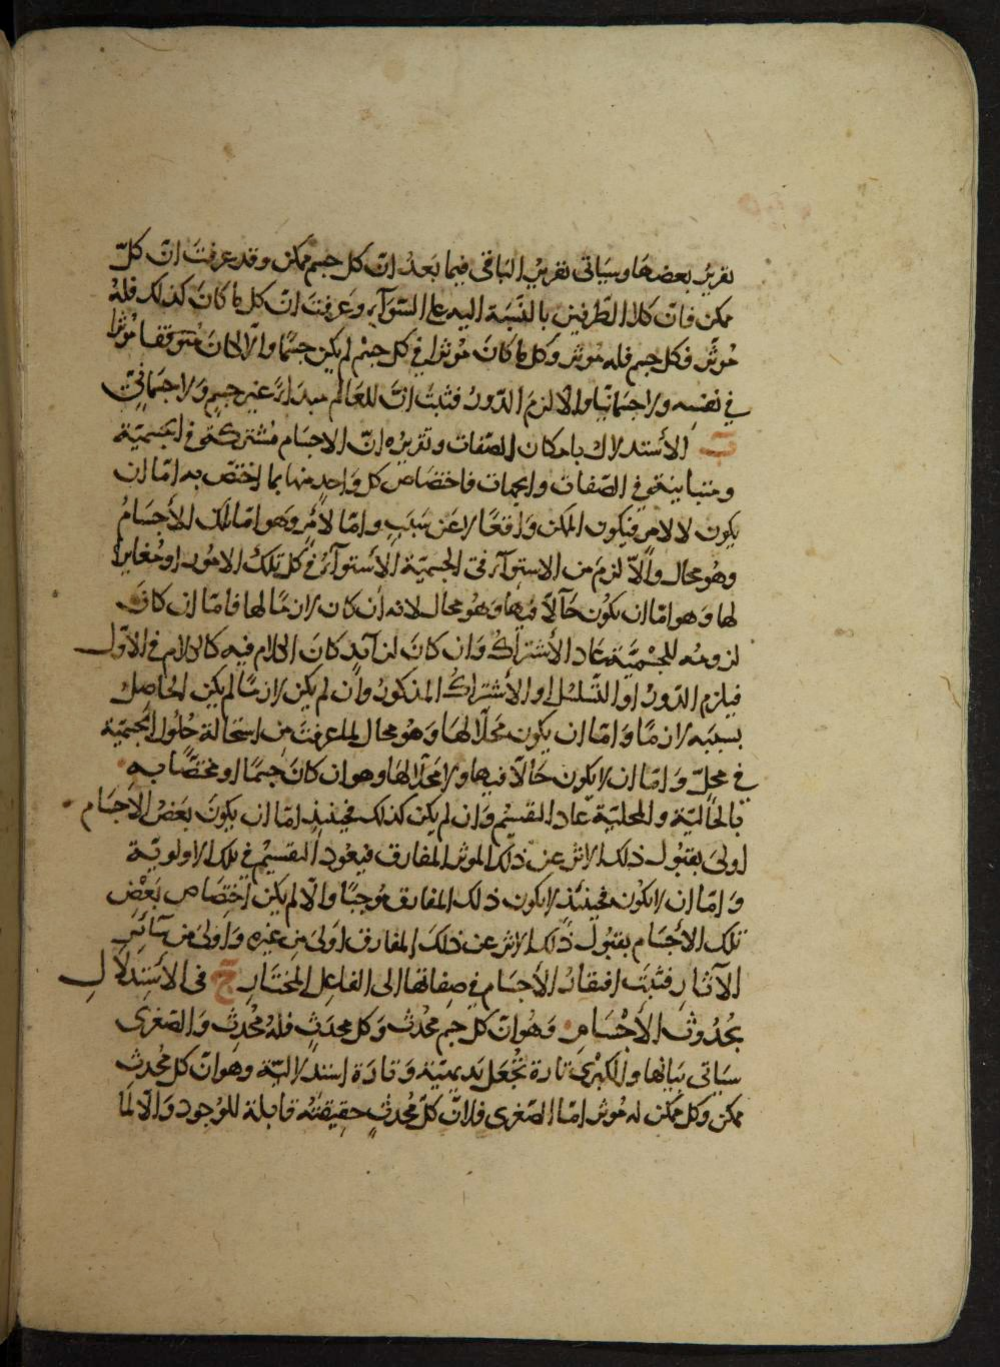 تقرير بعضها وسياتى تقرير الباقى فيما بعد ان كل جسم ممكن وقد عرفت ان كل
ممكن فان كلا الطرفين بالنسبة اليه على السوآء وعرفت ان كل ما كان كذلك فله
مؤثر فكل جسم فله مؤثر وكل ما كان مؤثرا فى كل جسم لم يكن جسما والا لكان متوقفا مؤثرا
في نفسه ولا جسمانيا والا لزم الدور فثبت ان للعالم مبدا غير جسم ولا جسماني
ب الاستدلال بامكان الصفات وتقريره ان الاجسام مشتركة في الجسمية
ومتباينة في الصفات والجهات فاختصاص كل واحد منها بما اختص به اما ان
يكون لا لامر فيكون الممكن واقعا لا عن سبب واما لامر وهو اما تلك الاجسام
وهو محال والا لزم من الاستوآء في الجسمية الاستوآء في كل تلك الامور او مغايرا
لها وهو اما ان يكون حالا فيها وهو محال لانه ان كان لازما لها فاما ان كان
لزومه للجسمية عاد الاشتراك وان كان لزآئد كان الكلام فيه كالكلام في الاول
فيلزم الدور او التسلسل او الاشتراك المذكور وان لم يكن لازما لم يكن الحاصل
بسببه لازما واما ان يكون محلا لها وهو محال لما عرفت من استحالة حلول الجسمية
في محل واما ان لا يكون حالا فيها ولا محلا لها وهو ان كان جسما او مختصا به
بالحالية والمحلية عاد التقسيم وان لم يكن كذلك فحينئذ اما ان يكون بعض الاجسام
اولى بقبول ذلك الاثر عن ذلك المؤثر المفارق فيعود التقسيم في تلك الاولوية
واما ان لا يكون فحينئذ لا يكون ذلك المفارق موجبا والا لم يكن اختصاص بعض
تلك الاجسام بقبول ذلك الاثر عن ذلك المفارق اولى من غيره واولى من سآئر
الآثار فثبت افتقار الاجسام في صفاتها الى الفاعل المختار ج فى الاستدلال
بحدوث الاجسام وهو ان كل جسم محدث وكل محدث فله محدث والصغرى
سياتى بيانها والكبرى تارة تجعل بديهية وتارة استدلالية وهو ان كل محدث
ممكن وكل ممكن له مؤثر اما الصغرى فلان كل محدث حقيقته قابلة للوجود والا لما